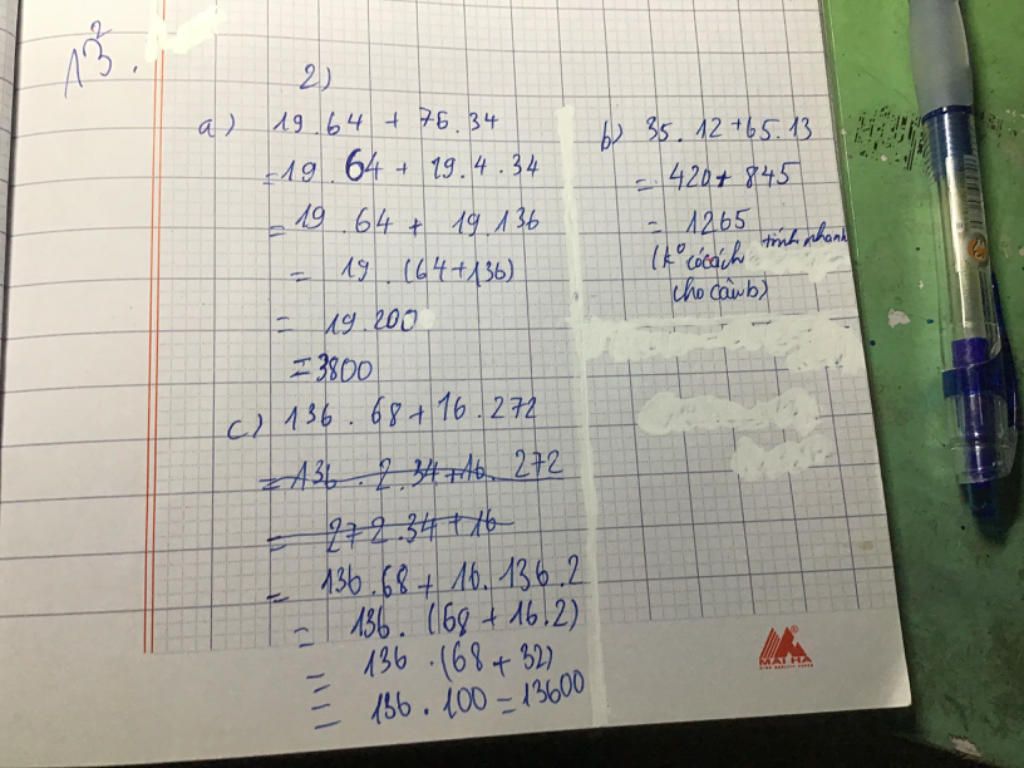 13².
2)
a) 19.64 + 76.34
= 19.64 + 19.4.34
= 19.64 + 19.136
= 19.(64+136)
= 19.200
= 3800
b) 35.12+65.13
= 420+ 845
= 1265
(k° có cách tính nhanh
cho câu b)
c) 136.68+16.272
= 136.2.34+16.272
= 272.34+16
= 136.68+ 16.136.2
= 136.(68+16.2)
= 136.(68+32)
= 136.100=13600
MAI HA